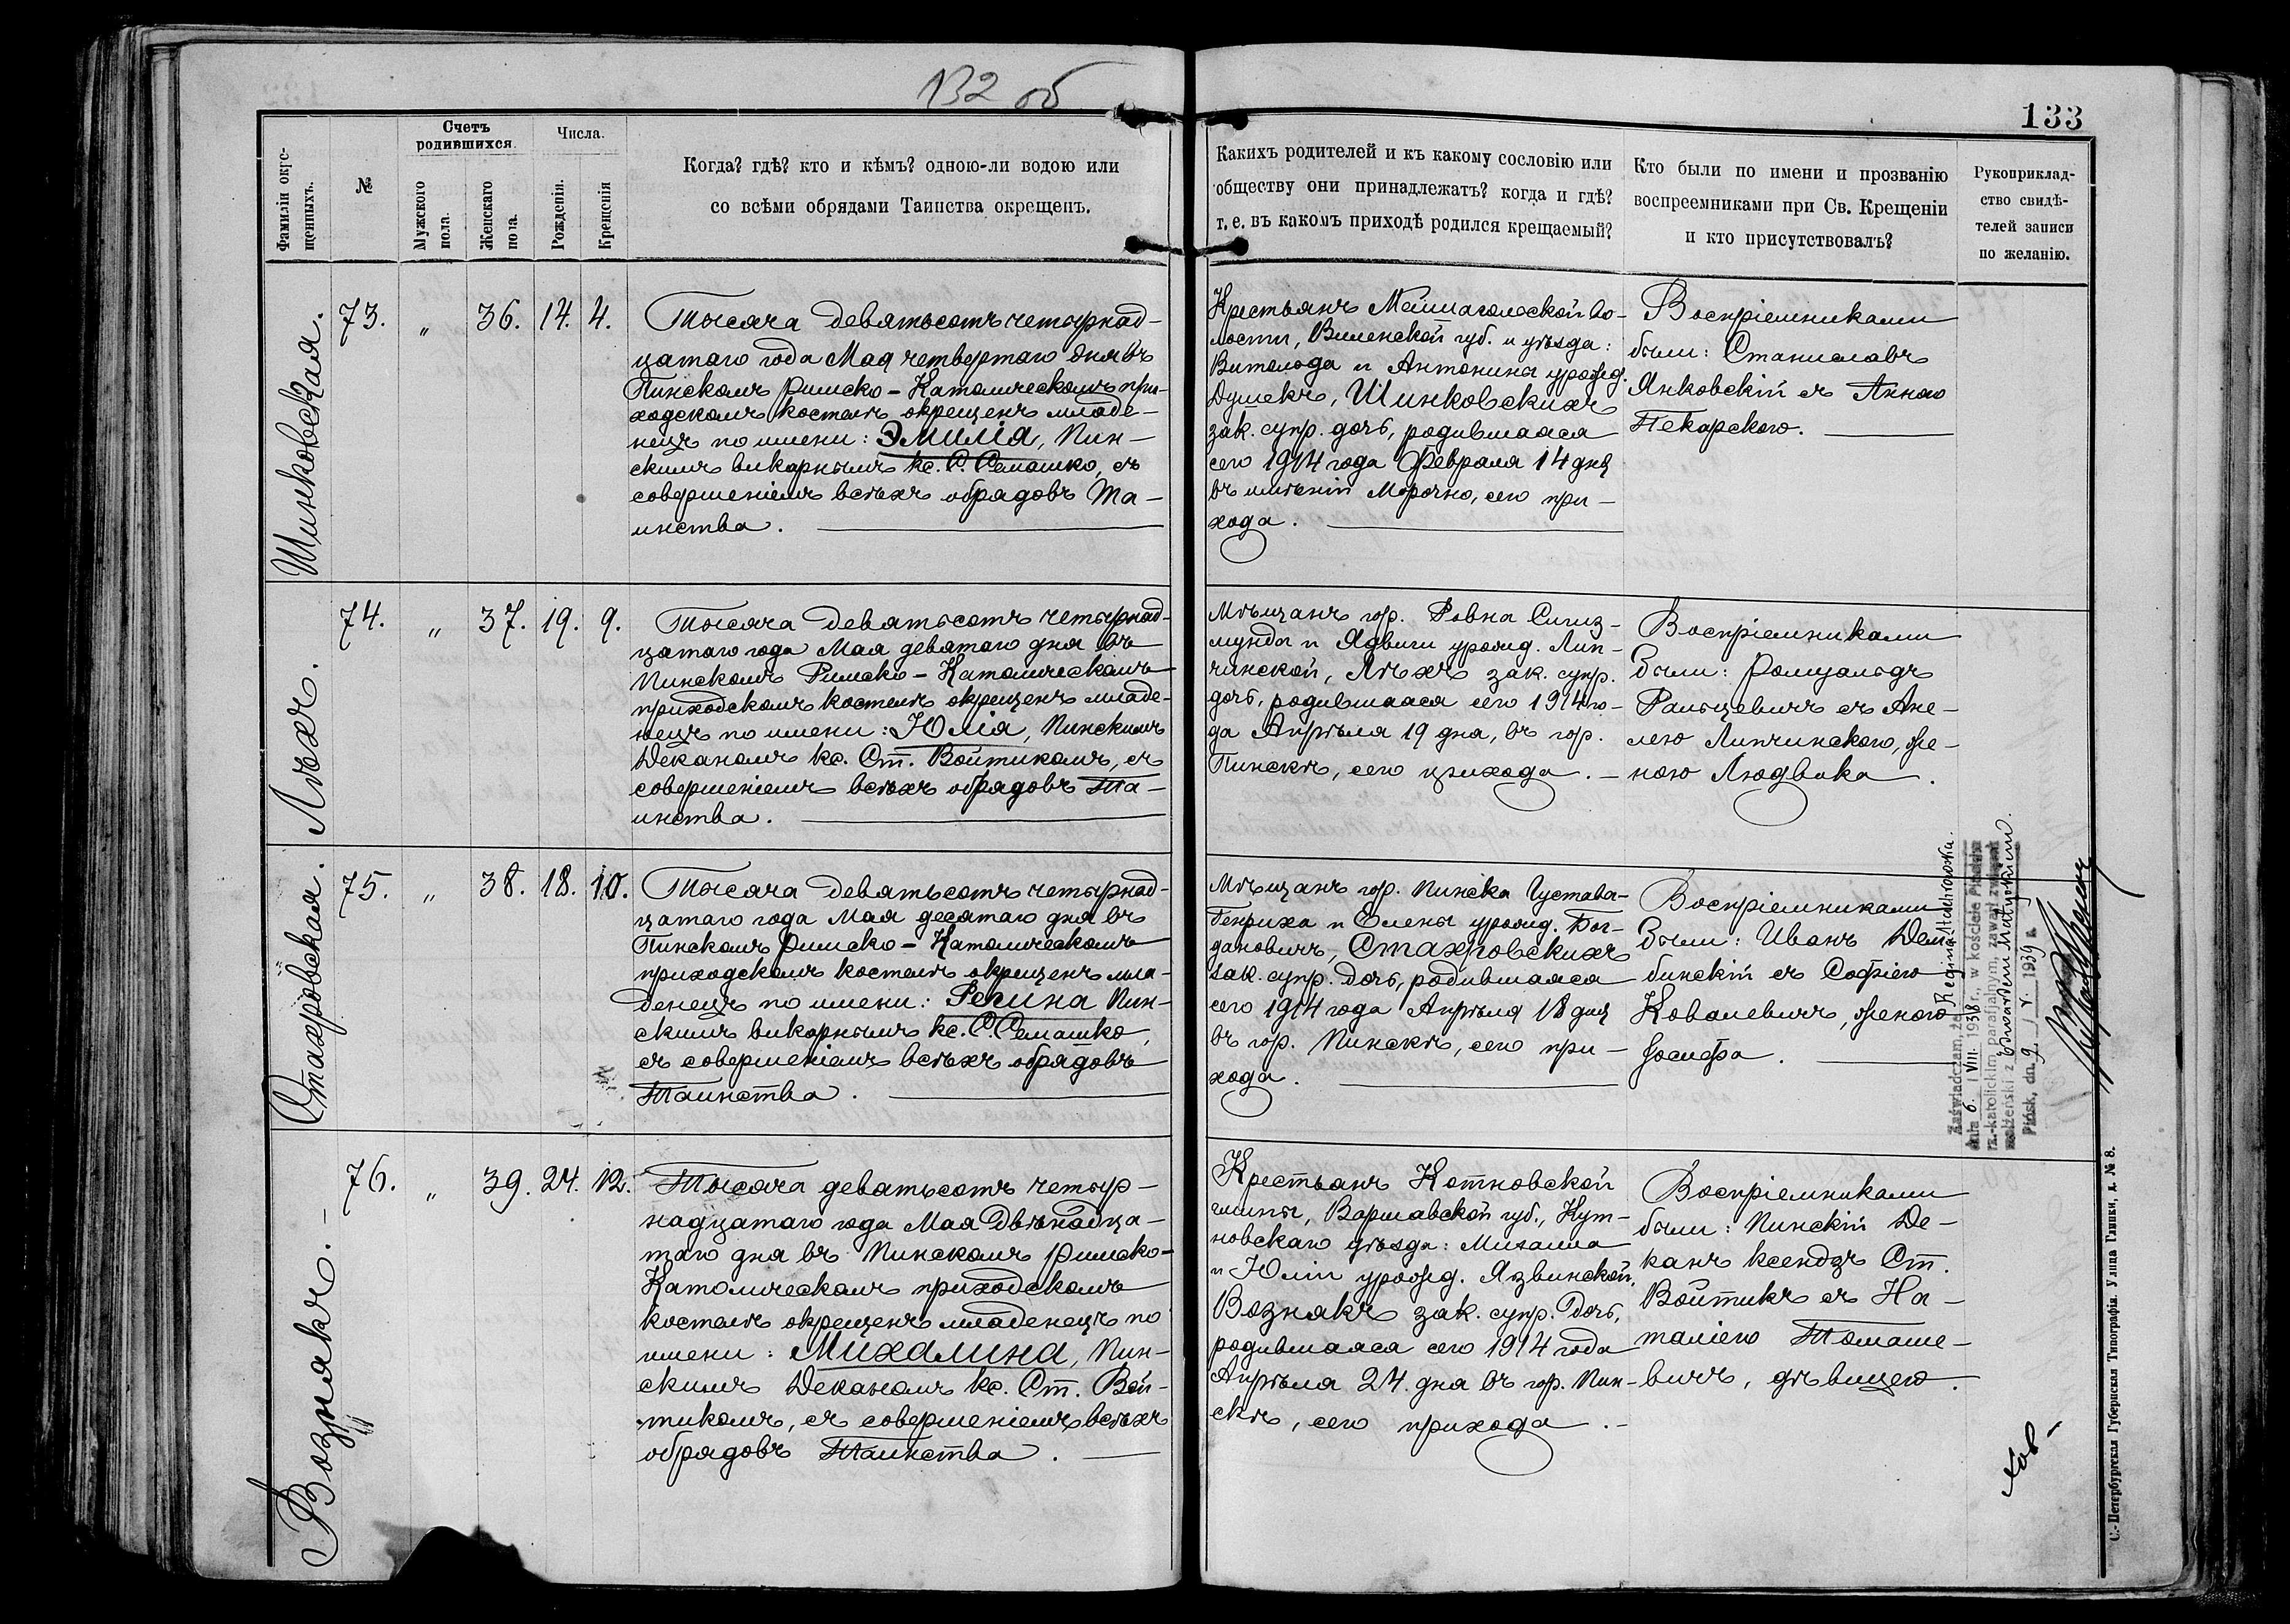 132 об
133
Фамиліи окре-
щенныхъ.
№
Счетъ
родившихся.
Мужского
пола.
Женскаго
пола.
Числа.
Рожденія.
Крещенія
Когда? гдѣ? кто и кѣмъ? одною-ли водою или
со всѣми обрядами Таинства окрещенъ.
Какихъ родителей и къ какому сословію или
обществу они принадлежатъ? когда и гдѣ?
т. е. въ какомъ приходѣ родился крещаемый?
Кто были по имени и прозванію
воспреемниками при Св. Крещеніи
и кто присутствовалъ?
Рукоприклад-
ство свидѣ-
телей записи
по желанію.
Шинковская.
73. „ 36. 14. 4.
Тысяча девятьсотъ четырнад-
цатаго года Мая четвертаго дня въ
Пинскомъ Римско-Католическомъ при-
ходскомъ костелѣ окрещенъ младе-
нецъ по имени: Эмилія, Пин-
скимъ викарнымъ кс. С. Семашко, съ
совершеніемъ всѣхъ обрядовъ Та-
инства.
Крестьянъ Мейшагольской во-
лости, Виленской губ. и уѣзда:
Витольда и Антонины урожд.
Душекъ, Шинковскихъ
зак. супр. дочь, родившаяся
сего 1914 года Февраля 14 дня
въ имѣніи Морочно, сего при-
хода.
Воспріемниками
были: Станиславъ
Янковскій съ Анною
Пекарского.
Лѣхъ.
74. „ 37. 19. 9.
Тысяча девятьсотъ четырнад-
цатаго года Мая девятаго дня въ
Пинскомъ Римско-Католическомъ
приходскомъ костелѣ окрещенъ младе-
нецъ по имени: Юлія, Пинскимъ
Деканомъ кс. Ст. Войтикомъ, съ
совершеніемъ всѣхъ обрядовъ Та-
инства.
Мѣщанъ гор. Ровна Сигиз-
мунда и Ядвиги урожд. Лип-
чинской, Лѣхъ зак. супр.
дочь, родившаяся сего 1914 го-
да Апрѣля 19 дня, въ гор.
Пинскѣ, сего прихода.
Воспріемниками
были: Ромуальдъ
Ральцевичъ съ Ане-
лею Липчинского, же-
ною Людвика.
Стахровская.
75. „ 38. 18. 10.
Тысяча девятьсотъ четырнад-
цатаго года Мая десятаго дня въ
Пинскомъ Римско-Католическомъ
приходскомъ костелѣ окрещенъ мла-
денецъ по имени: Регина Пин-
скимъ викарнымъ кс. С. Семашко,
съ совершеніемъ всѣхъ обрядовъ
Таинства.
Мѣщанъ гор. Пинска Густава-
Генриха и Елены урожд. Бог-
дановичъ, Стахровскихъ
зак. супр. дочь, родившаяся
сего 1914 года Апрѣля 18 дня
въ гор. Пинскѣ, сего при-
хода.
Воспріемниками
были: Иванъ Дем-
бинскій съ Софіею
Ковалевичъ, женою
Іосифа.
Zaświadczam, że Regina Stachrowska
dnia 6 / VIII 1938 r., w kościele Pińskim
rz.-katolickim parafjalnym, zawarł związek
małżeński z Edwardem Matyskiem.
Pińsk, dn. 9 / V. 1939 r.
Вознякъ.
76. „ 39. 24. 12.
Тысяча девятьсотъ четыр-
надцатаго года Мая двѣнадца-
таго дня въ Пинскомъ Римско-
Католическомъ приходскомъ
костелѣ окрещенъ младенецъ по
имени: Михалина, Пин-
скимъ Деканомъ кс. Ст. Вой-
тикомъ, съ совершеніемъ всѣхъ
обрядовъ Таинства.
Крестьянъ Котновской
гмины, Варшавской губ., Кут-
новскаго уѣзда: Михаила
и Юліи урожд. Язвинской,
Вознякъ зак. супр. дочь,
родившаяся сего 1914 года
Апрѣля 24. дня въ гор. Пин-
скѣ, сего прихода.
Воспріемниками
были: Пинскій Де-
канъ ксендзъ Ст.
Войтикъ съ На-
таліею Томаше-
вичъ, дѣвицею.
С.-Петербургская Губернская Типографія. Улица Глинки, д. № 8.